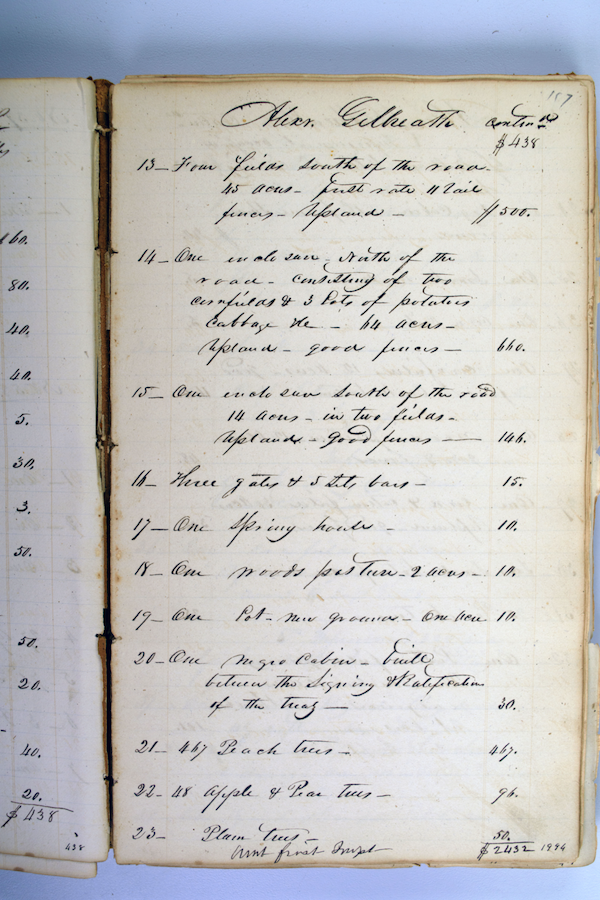 60.
80.
40.
40.
5.
30.
3.
50.
50.
20.
40.
20.
$438
438
157
Alexr. Gilbreath contind
$438
13 — Four fields South of the road
45 acres — first rate 11 rail
fences — Upland — $500.
14 — One enclosure — North of the
road — consisting of two
cornfields & 3 Lots of potatoes
Cabbage &c — 64 acres —
Upland — good fences — 660.
15 — One enclosure South of the road
14 acres — in two fields —
Upland — good fences — 146.
16 — Three gates & 5 sets bars — 15.
17 — One Spring house — 10.
18 — One woods pasture — 2 acres — 10.
19 — One Lot — new ground — One Acre 10.
20 — One negro Cabin — built
between the Signing & Ratification
of the treaty — 30.
21 — 467 Peach trees — 467.
22 — 48 Apple & Pear trees — 96.
23 — Plum trees — 50.
$2432 1994